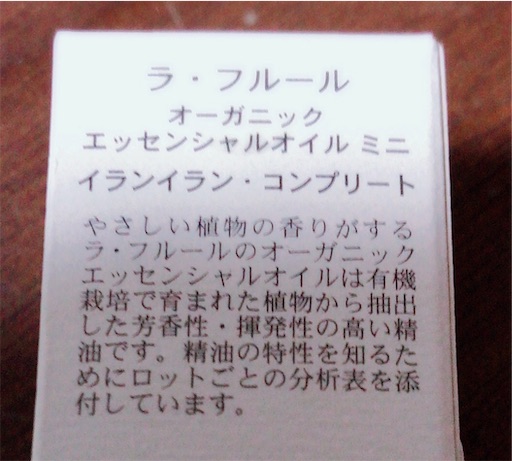 ラ・フルール
オーガニック
エッセンシャルオイル ミニ
イランイラン・コンプリート
やさしい植物の香りがする
ラ・フルールのオーガニック
エッセンシャルオイルは有機
栽培で育まれた植物から抽出
した芳香性・揮発性の高い精
油です。精油の特性を知るた
めにロットごとの分析表を添
付しています。